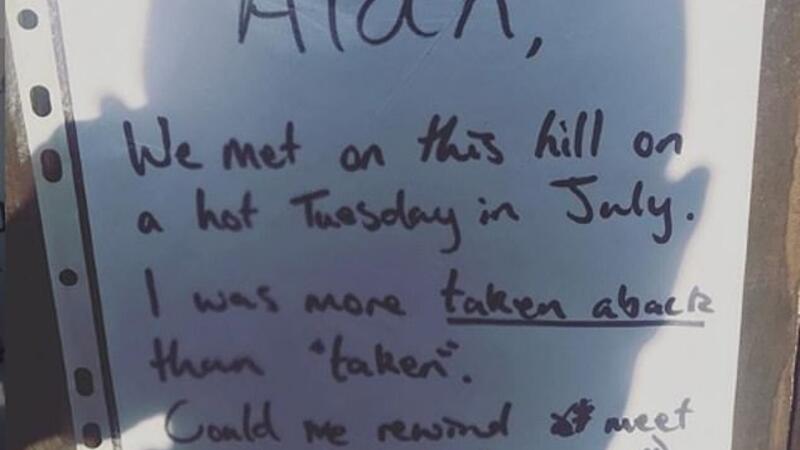 Alan,
We met on this hill on
a hot Tuesday in July.
I was more taken aback
than "taken".
Could we rewind meet